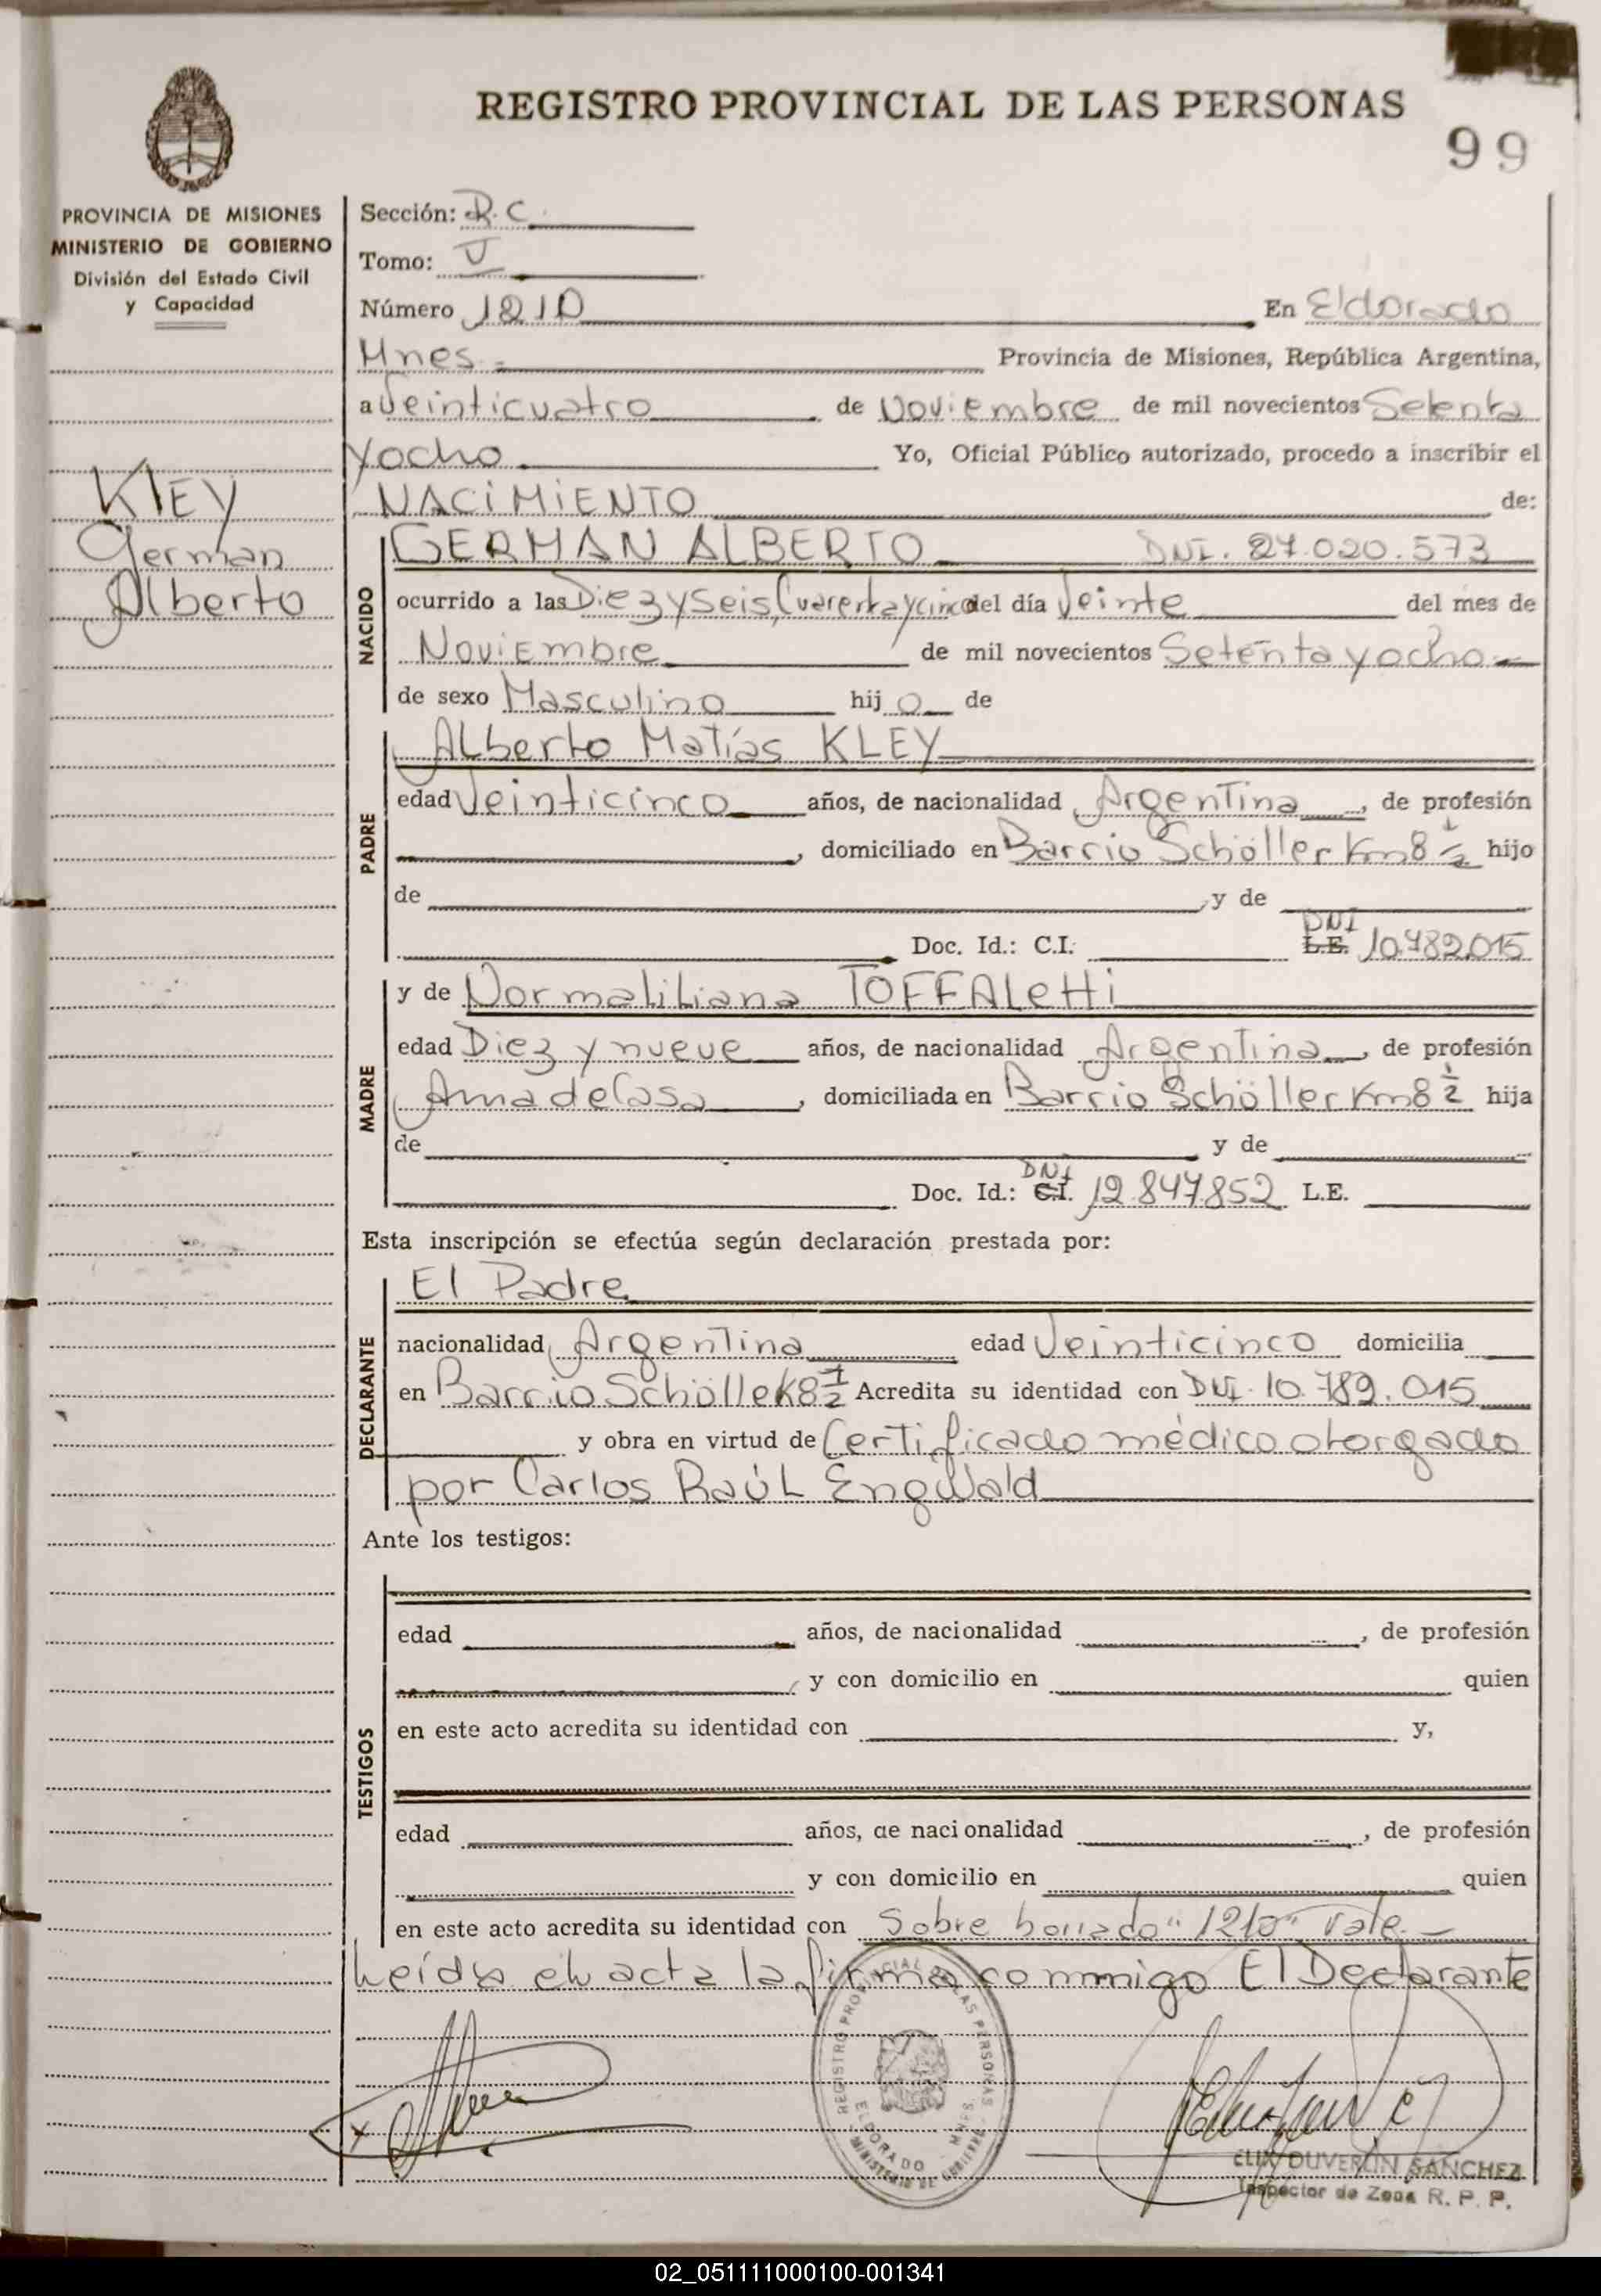 REGISTRO PROVINCIAL DE LAS PERSONAS
99
PROVINCIA DE MISIONES
MINISTERIO DE GOBIERNO
División del Estado Civil
y Capacidad
KlEY
German
Alberto
Sección: R.C.
Tomo: V
Número 1210 En Eldorado
Mnes. Provincia de Misiones, República Argentina,
a Veinticuatro de Noviembre de mil novecientos Setenta
y ocho Yo, Oficial Público autorizado, procedo a inscribir el
NACIMIENTO de:
NACIDO
GERMAN ALBERTO DNI. 27.020.573
ocurrido a las Diez y Seis, Cuarenta y cinco del día Veinte del mes de
Noviembre de mil novecientos Setenta y ocho
de sexo Masculino hij o de
PADRE
Alberto Matías KLEY
edad Veinticinco años, de nacionalidad Argentina, de profesión
, domiciliado en Barrio Schöller Km 8 1/2 hijo
de , y de
Doc. Id.: C.I. L.E. DNI 10.782.015
MADRE
y de Norma Liliana TOFFALETTi
edad Diez y nueve años, de nacionalidad Argentina, de profesión
Ama de Casa, domiciliada en Barrio Schöller Km 8 1/2 hija
de y de
Doc. Id.: C.I. DNI 12.847.852 L.E.
Esta inscripción se efectúa según declaración prestada por:
DECLARANTE
El Padre
nacionalidad Argentina edad Veinticinco domicilia
en Barrio Schölle K8 1/2 Acredita su identidad con DNI. 10.789.015
y obra en virtud de Certificado médico otorgado
por Carlos Raúl Engwald
Ante los testigos:
TESTIGOS
edad años, de nacionalidad , de profesión
y con domicilio en quien
en este acto acredita su identidad con y,
edad años, de nacionalidad , de profesión
y con domicilio en quien
en este acto acredita su identidad con Sobre borrado "1210" vale.
Leída el acta la firma conmigo El Declarante
REGISTRO PROVINCIAL DE LAS PERSONAS
ELDORADO MNES.
MINISTERIO DE GOBIERNO
DUVERLIN SANCHEZ
Inspector de Zona R. P. P.
02_051111000100-001341